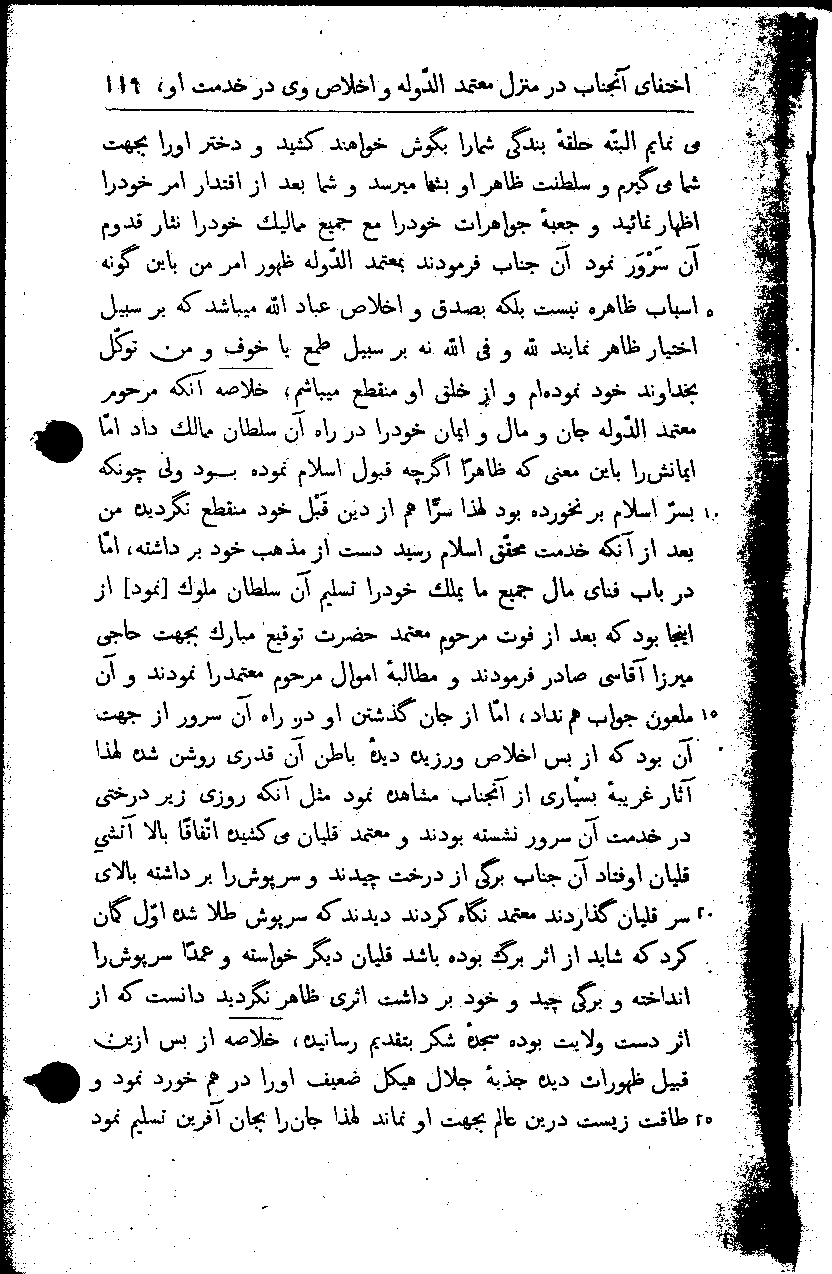 اختفای آنجناب در منزل معتمد الدّوله و اخلاص وی در خدمت او، ۱۱۹
می نمایم البتّه حلقهٔ بندگی شمارا بگوش خواهند کشید و دختر اورا بجهت
شما می‌گیرم و سلطنت ظاهر او بشما میرسد و شما بعد از اقتدار امر خودرا
اظهار نمائید و جعبهٔ جواهرات خودرا مع جمیع ممالیك خودرا نثار قدوم
آن سَرْوَر نمود آن جناب فرمودند بمعتمد الدّوله ظهور امر من باین گونه
۵ اسباب ظاهره نیست بلکه بصدق و اخلاص عباد الله میباشد که بر سبیل
اختیار ظاهر نمایند لله و فی الله نه بر سبیل طمع یا خوف و من توکّل
بخداوند خود نموده‌ام و از خلق او منقطع میباشم، خلاصه آنکه مرحوم
معتمد الدّوله جان و مال و ایمان خودرا در راه آن سلطان ممالك داد امّا
ایمانش‌را باین معنی که ظاهرًا اگرچه قبول اسلام نموده بود ولی چونکه
۱۰ بسرّ اسلام بر نخورده بود لهذا سرًّا هم از دین قَبْل خود منقطع نگردیده من
بعد از آنکه خدمت محقّق اسلام رسید دست از مذهب خود بر داشته، امّا
در باب فنای مال جمیع ما یملك خودرا تسلیم آن سلطان ملوك [نمود] از
اینجا بود که بعد از فوت مرحوم معتمد حضرت توقیع مبارك بجهت حاجی
میرزا آقاسی صادر فرمودند و مطالبهٔ اموال مرحوم معتمدرا نمودند و آن
۱۵ ملعون جواب هم نداد، امّا از جان گذشتن او در راه آن سرور از جهت
آن بود که از بس اخلاص ورزیده دیدهٔ باطن آن قدری روشن شده لهذا
آثار غریبهٔ بسیاری از آنجناب مشاهده نمود مثل آنکه روزی زیر درختی
در خدمت آن سرور نشسته بودند و معتمد قلیان می‌کشیده اتّفاقًا بالا آتشی
قلیان اوفتاد آن جناب برگی از درخت چیدند و سرپوش‌را بر داشته بالای
۲۰ سر قلیان گذاردند معتمد نگاه کردند دیدند که سرپوش طلا شده اوّل گمان
کرد که شاید از اثر برگ بوده باشد قلیان دیگر خواسته و عمدًا سرپوش‌را
انداخته و برگی چید و خود بر داشت اثری ظاهر نگردید دانست که از
اثر دست ولایت بوده سجدهٔ شکر بتقدیم رسانیده، خلاصه از بس ازین
قبیل ظهورات دیده جذبهٔ جلال هیکل ضعیف اورا در هم خورد نمود و
۲۵ طاقت زیست درین عالم بجهت او نماند لهذا جان‌را بجان آفرین تسلیم نمود